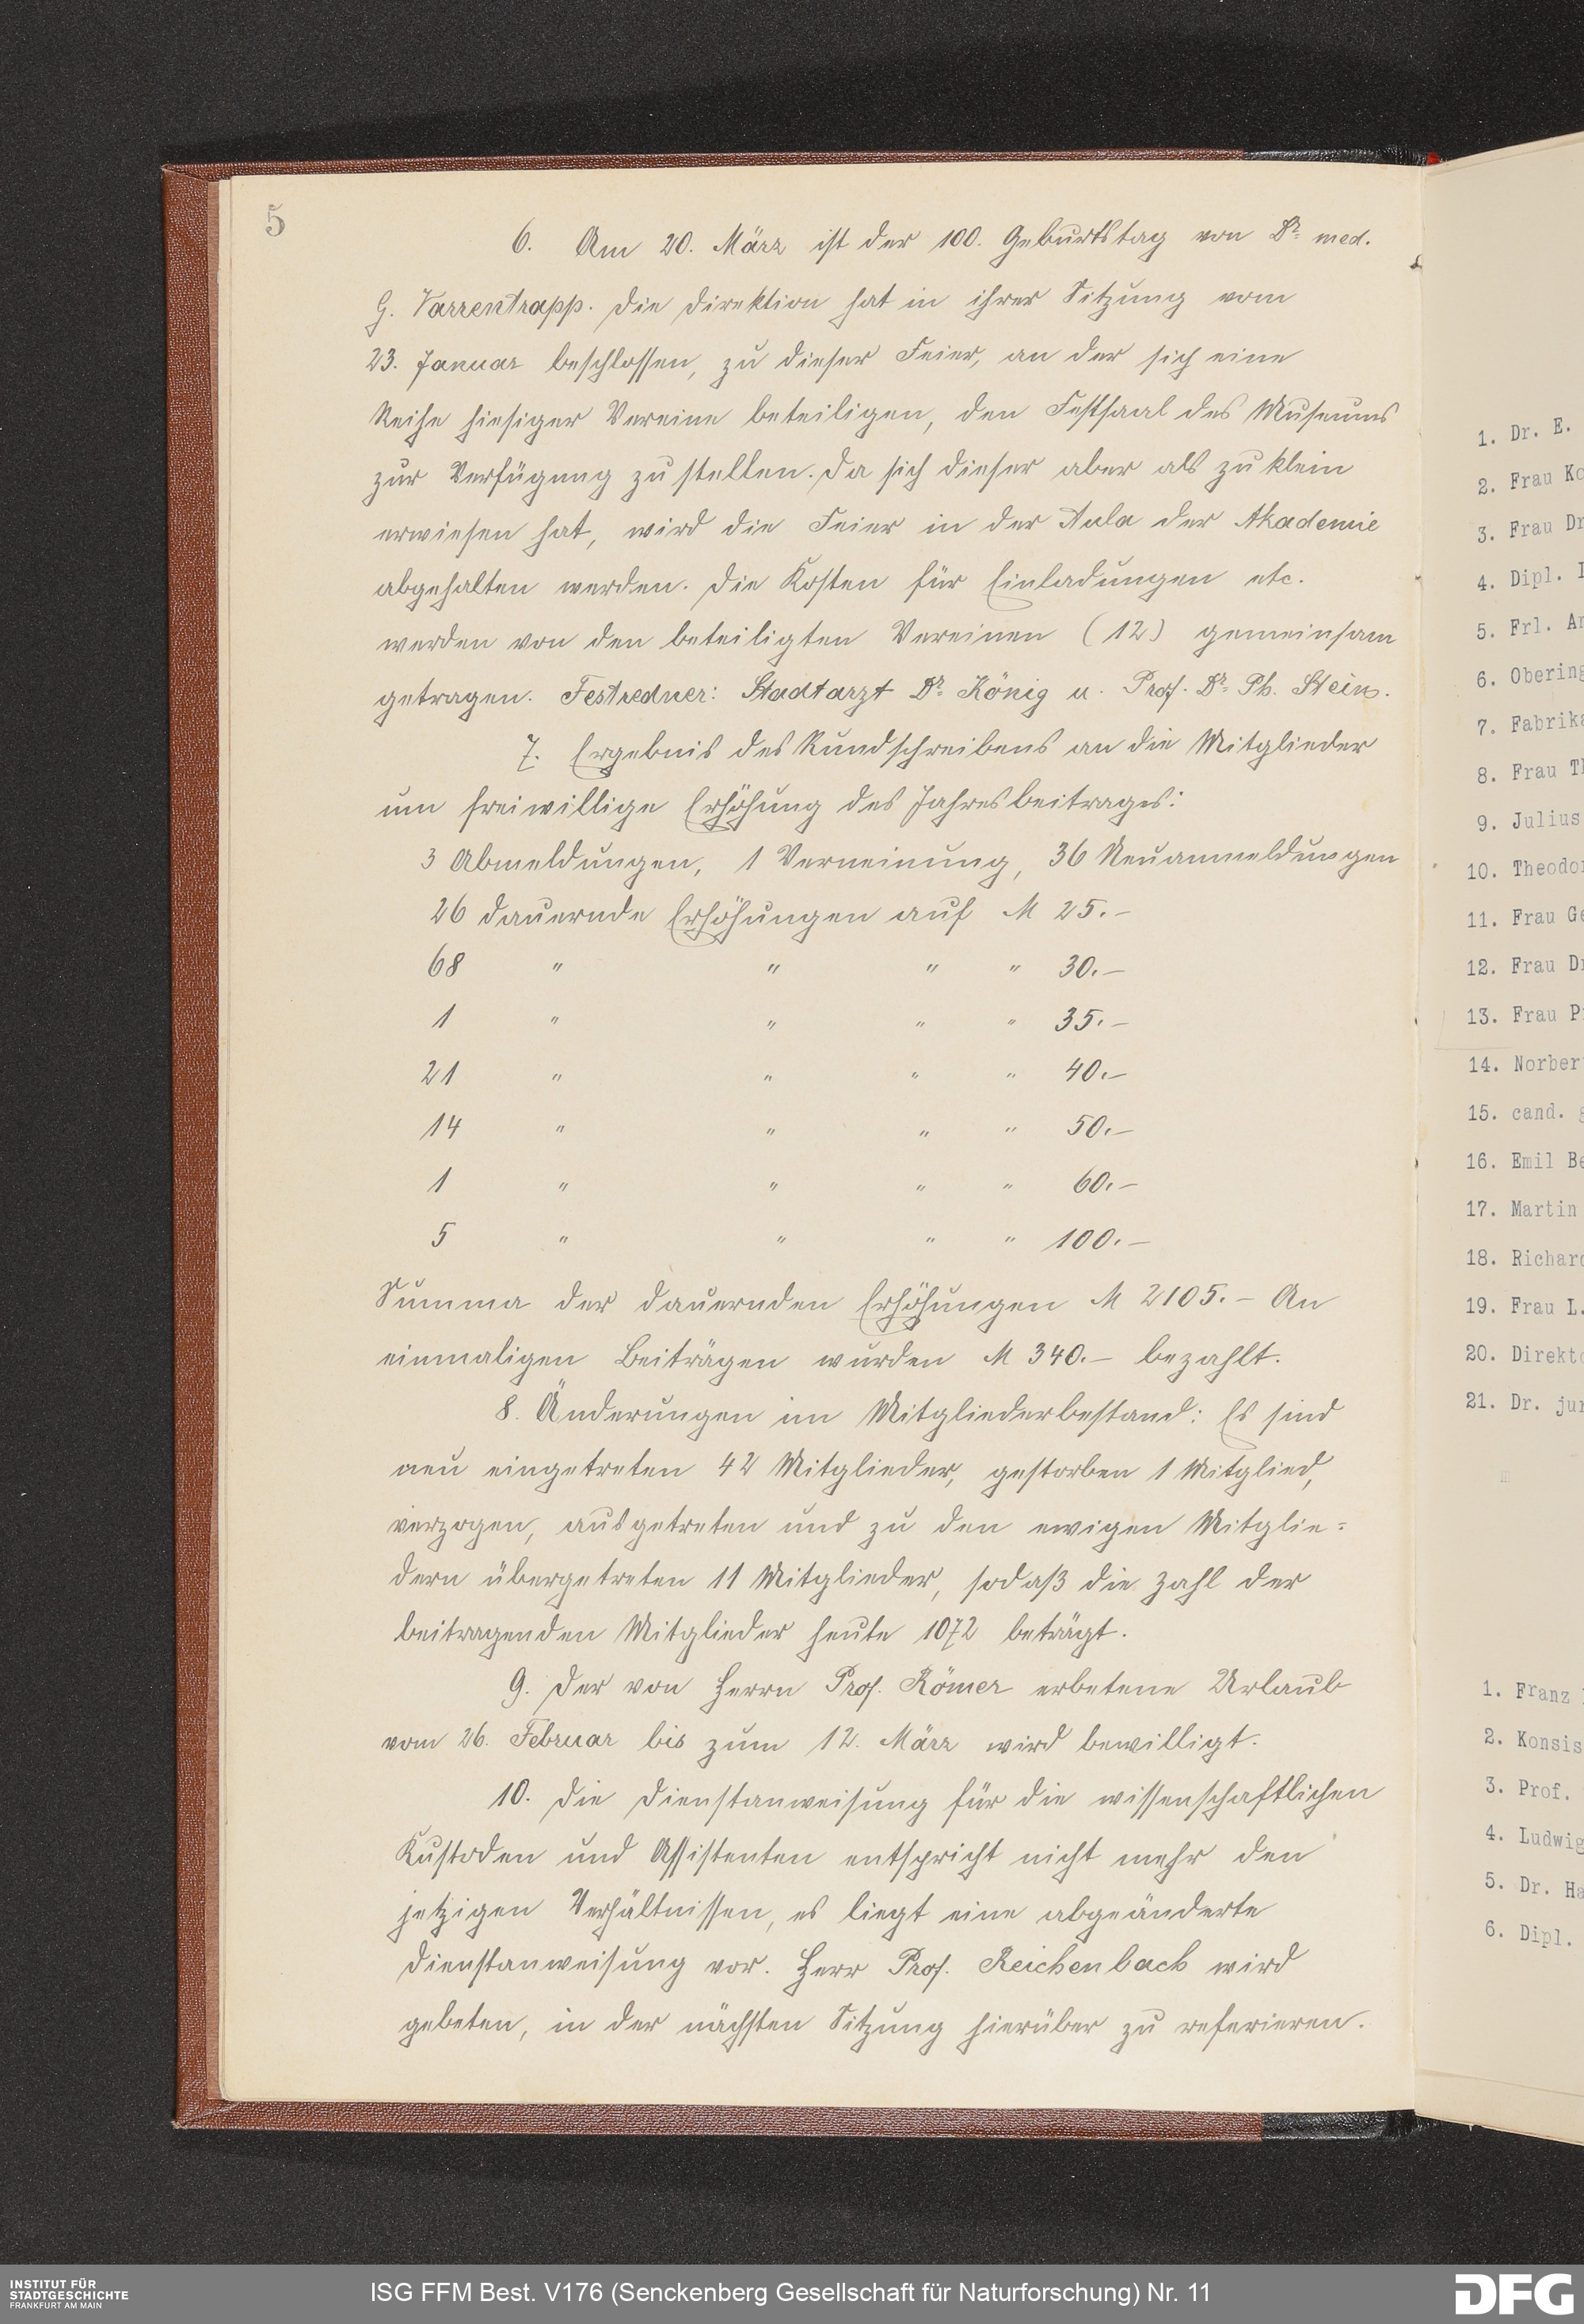 5
6. Am 20. März ist der 100. Geburtstag von Dr. med.
G. Varrentrapp. Die Direktion hat in ihrer Sitzung vom
23. Januar beschlossen, zu dieser Feier, an der sich eine
Reihe hiesiger Vereine beteiligen, den Festsaal des Museums
zur Verfügung zu stellen. Da sich dieser aber als zu klein
erwiesen hat, wird die Feier in der Aula der Akademie
abgehalten werden. Die Kosten für Einladungen etc.
werden von den beteiligten Vereinen (12) gemeinsam
getragen. Festredner: Stadtarzt Dr. König u. Prof. Dr. Ph. Stein.
7. Ergebnis des Rundschreibens an die Mitglieder
um freiwillige Erhöhung des Jahresbeitrages:
3 Abmeldungen, 1 Verneinung, 36 Neuanmeldungen
26 dauernde Erhöhungen auf M 25.–
68 " " " " 30.–
1 " " " " 35.–
21 " " " " 40.–
14 " " " " 50.–
1 " " " " 60.–
5 " " " " 100.–
Summa der dauernden Erhöhungen M 2105.– An
einmaligen Beiträgen wurden M 340.– bezahlt.
8. Änderungen im Mitgliederbestand: Es sind
neu eingetreten 42 Mitglieder, gestorben 1 Mitglied,
verzogen, ausgetreten und zu den ewigen Mitglie=
dern übergetreten 11 Mitglieder, sodaß die Zahl der
beitragenden Mitglieder heute 1072 beträgt.
9. Der von Herrn Prof. Römer erbetene Urlaub
vom 26. Februar bis zum 12. März wird bewilligt.
10. Die Dienstanweisung für die wissenschaftlichen
Kustoden und Assistenten entspricht nicht mehr den
jetzigen Verhältnissen, es liegt eine abgeänderte
Dienstanweisung vor. Herr Prof. Reichenbach wird
gebeten, in der nächsten Sitzung hierüber zu referieren.
1. Dr. E.
2. Frau
3. Frau
4. Dipl.
5. Frl.
6.
7.
8. Frau
9. Julius
10.
11. Frau
12. Frau
13. Frau
14.
15. cand.
16. Emil
17. Martin
18.
19. Frau L.
20.
21. Dr.
1. Franz
2.
3. Prof.
4.
5. Dr.
6. Dipl.
INSTITUT FÜR
STADTGESCHICHTE
FRANKFURT AM MAIN
ISG FFM Best. V176 (Senckenberg Gesellschaft für Naturforschung) Nr. 11
DFG